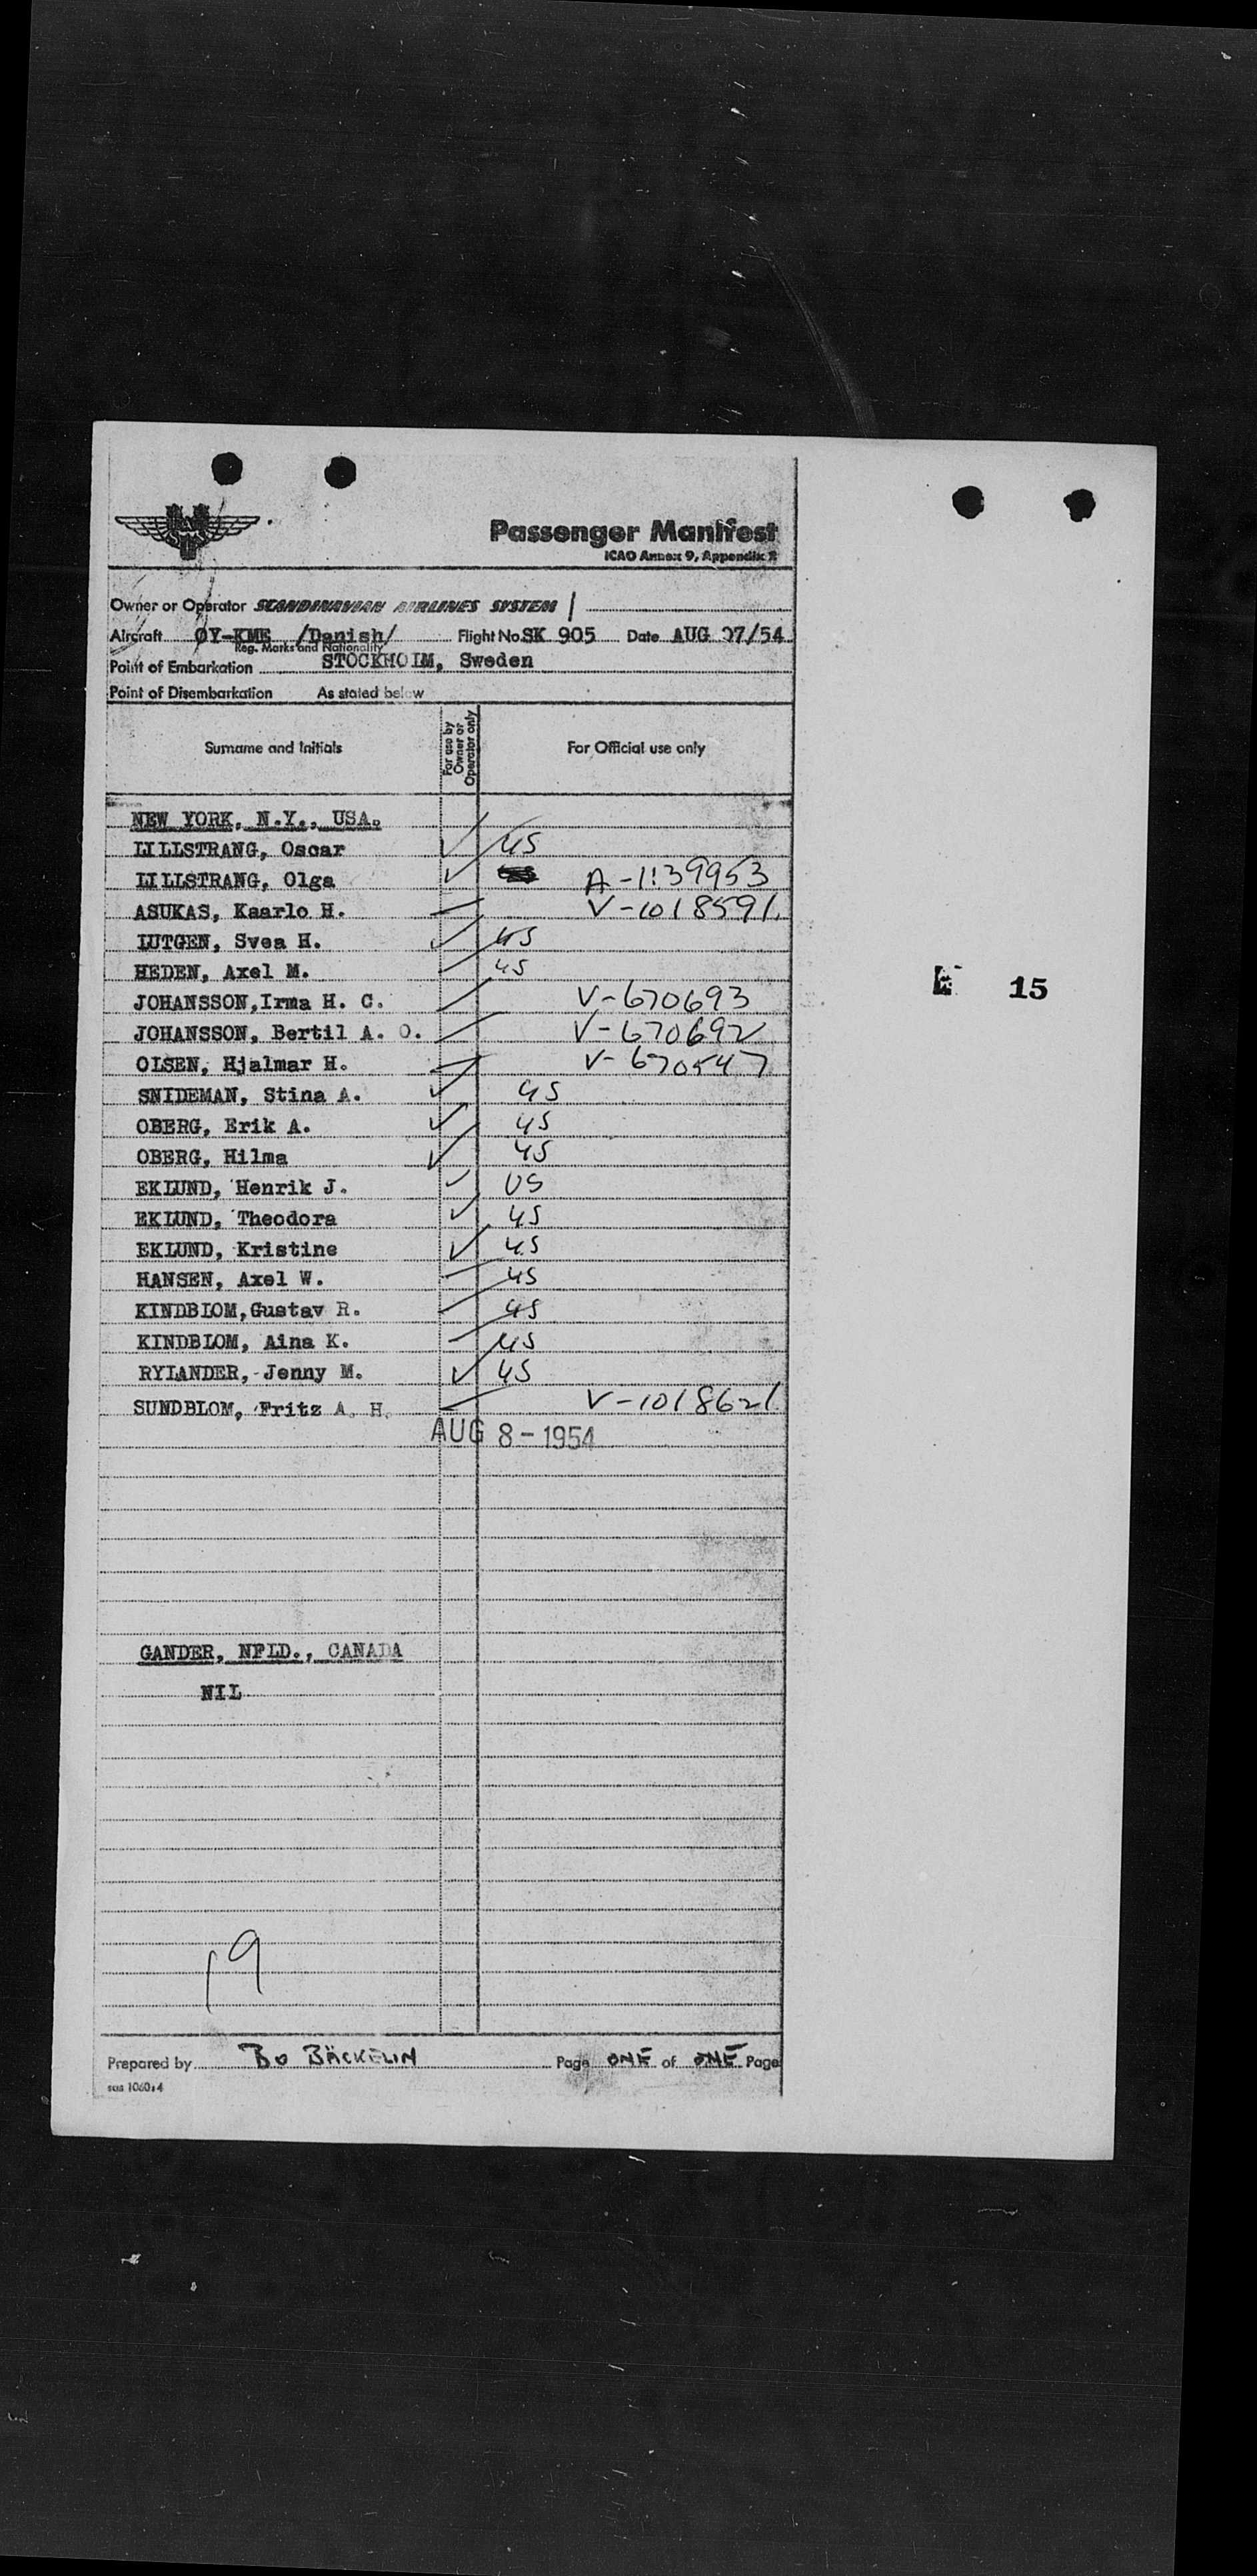 Passenger Manifest
ICAO Annex 9, Appendix 2
Owner or Operator SCANDINAVIAN AIRLINES SYSTEM
Aircraft OY-KME /Danish/ Flight No. SK 905 Date AUG 07/54
Reg. Marks and Nationality
Point of Embarkation STOCKHOLM, Sweden
Point of Disembarkation As stated below
Surname and Initials For use by Owner or Operator only For Official use only
NEW YORK, N.Y., USA.
LILLSTRANG, Oscar US
LILLSTRANG, Olga A-1139953
ASUKAS, Kaarlo H. V-1018591
LUTGEN, Svea H. US
HEDEN, Axel M. US
JOHANSSON, Irma H. C. V-670693
JOHANSSON, Bertil A. O. V-670692
OLSEN, Hjalmar H. V-670547
SNIDEMAN, Stina A. US
OBERG, Erik A. US
OBERG, Hilma US
EKLUND, Henrik J. US
EKLUND, Theodora US
EKLUND, Kristine US
HANSEN, Axel W. US
KINDBLOM, Gustav R. US
KINDBLOM, Aina K. US
RYLANDER, Jenny M. US
SUNDBLOM, Fritz A. H. V-1018621
AUG 8-1954
15
GANDER, NFLD., CANADA
NIL
19
Prepared by BO BÄCKELIN Page ONE of ONE Page
sas 1060:4